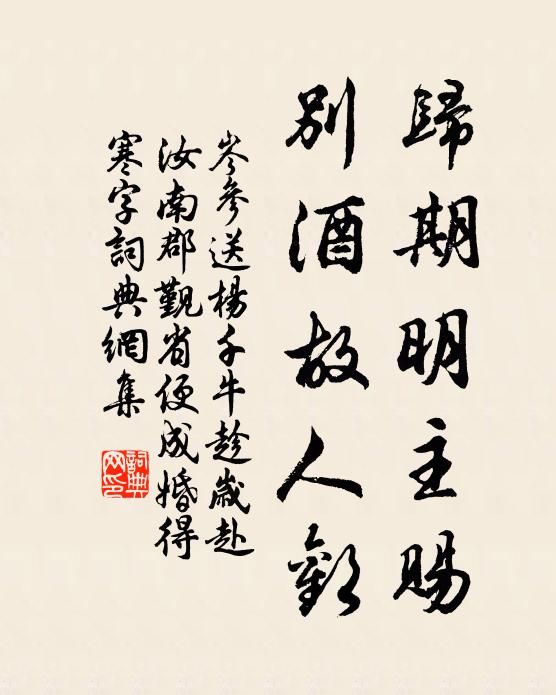 歸期明主賜
別酒故人歡
岑參送楊千牛趁歲赴
汝南郡觐省便成婚得
寒字詞典網集
詞典
网印